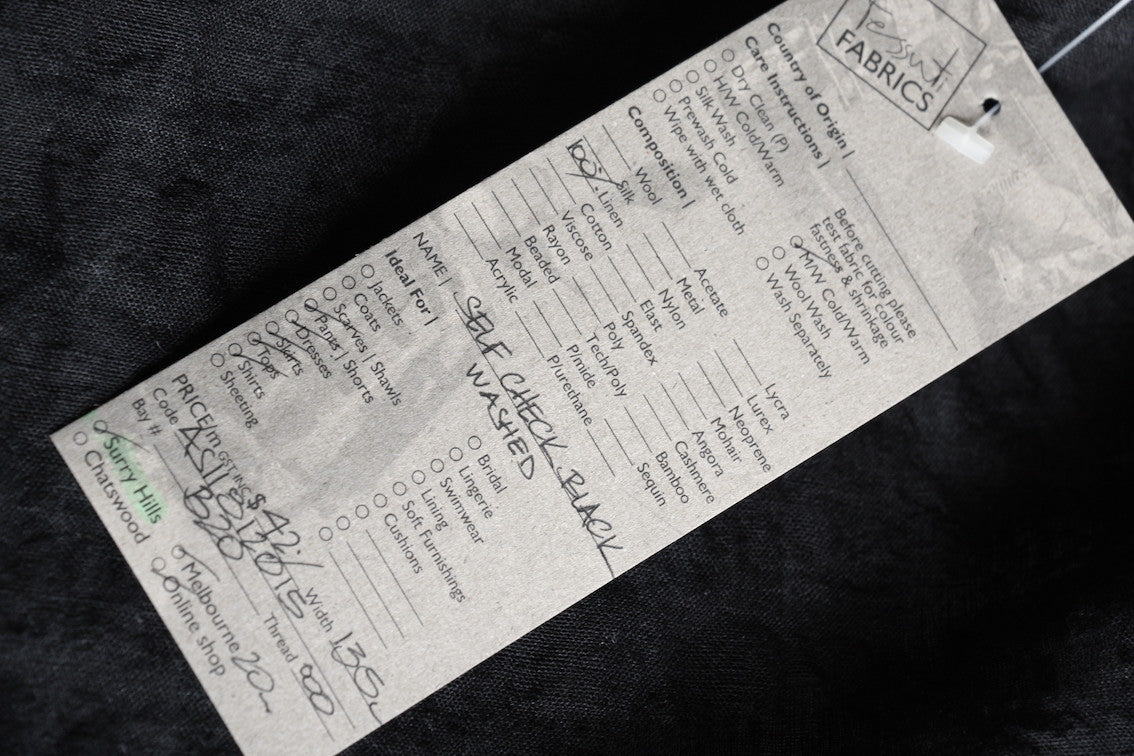 Tessuti
FABRICS
Country of Origin |
Care Instructions |
Dry Clean (P)
H/W Cold/Warm
Silk Wash
Prewash Cold
Wipe with wet cloth
Before cutting please
test fabric for colour
fastness & shrinkage
M/W Cold/Warm
Wool Wash
Wash Separately
Composition |
Wool
Silk
100% Linen
Cotton
Viscose
Rayon
Beaded
Modal
Acrylic
Acetate
Metal
Nylon
Elast
Spandex
Poly
Tech/Poly
P/mide
P/urethane
Lycra
Lurex
Neoprene
Mohair
Angora
Cashmere
Bamboo
Sequin
NAME | SELF CHECK BLACK
WASHED
Ideal For |
Jackets
Coats
Scarves | Shawls
Pants | Shorts
Dresses
Skirts
Tops
Shirts
Sheeting
Bridal
Lingerie
Swimwear
Lining
Soft Furnishings
Cushions
PRICE/m GST INC $ 42.- Width 135
Code
Bay # B20 Thread 000
Surry Hills
Chatswood
Melbourne 20m
Online shop